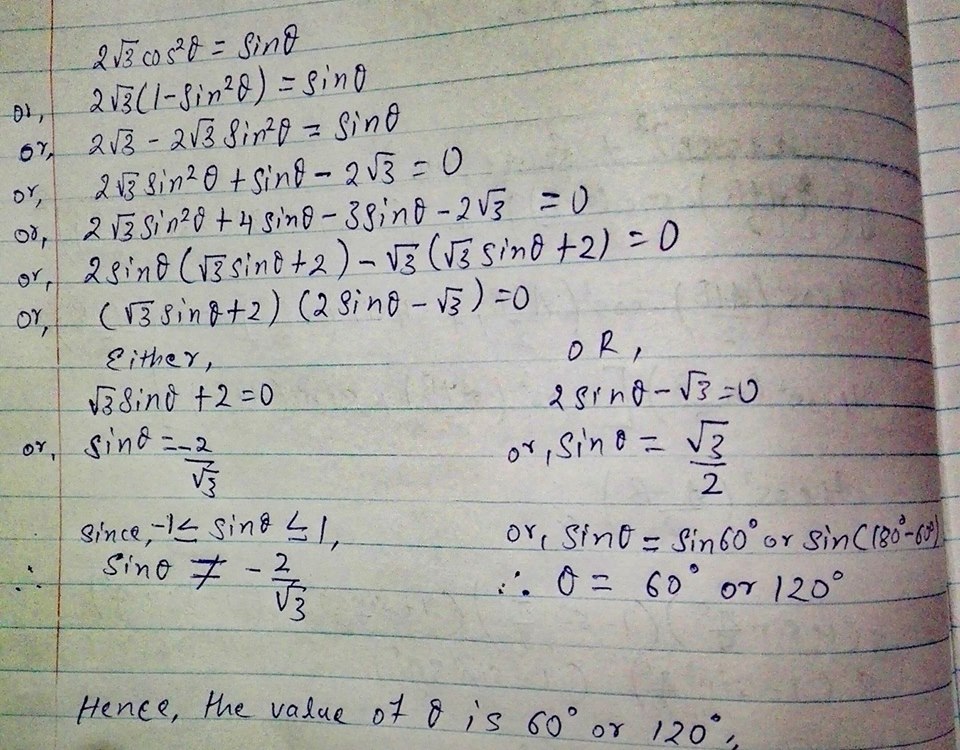 2√3 cos²θ = Sinθ
or, 2√3 (1 - Sin²θ) = Sinθ
or, 2√3 - 2√3 Sin²θ = Sinθ
or, 2√3 Sin²θ + Sinθ - 2√3 = 0
or, 2√3 Sin²θ + 4 Sinθ - 3 Sinθ - 2√3 = 0
or, 2 Sinθ (√3 Sinθ + 2) - √3 (√3 Sinθ + 2) = 0
or, (√3 Sinθ + 2) (2 Sinθ - √3) = 0
Either,
√3 Sinθ + 2 = 0
or, Sinθ = -2/√3
Since, -1 ≤ Sinθ ≤ 1,
∴ Sinθ ≠ -2/√3
OR,
2 Sinθ - √3 = 0
or, Sinθ = √3/2
or, Sinθ = Sin60° or Sin(180°-60°)
∴ θ = 60° or 120°
Hence, the value of θ is 60° or 120°,